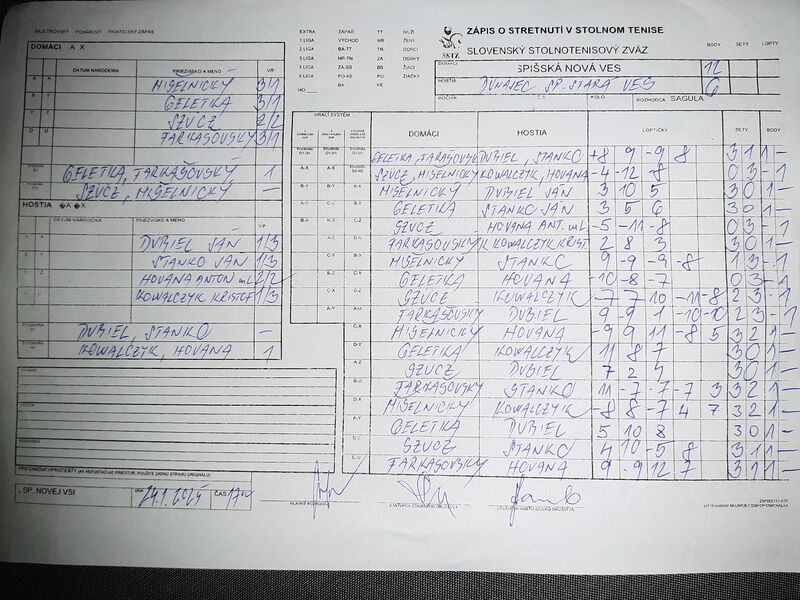 MAJSTROVSKÝ POHÁROVÝ PRIATEĽSKÝ ZÁPAS
DOMÁCI A X
DÁTUM NARODENIA PRIEZVISKO A MENO V/P
MIŠELNICKÝ 3/1
GELETKA 3/1
SZUCZ 2/2
FARKAŠOVSKÝ 3/1
GELETKA, FARKAŠOVSKÝ 1
SZUCZ, MIŠELNICKÝ -
HOSTIA �A �X
DÁTUM NARODENIA PRIEZVISKO A MENO V/P
DUBIEL JÁN 1/3
STANKO JÁN 1/3
HOVANA ANTON ml. 2/2
KOWALCZYK KRISTOF 1/3
DUBIEL, STANKO -
KOWALCZYK, HOVANA 1
DOMÁCI
HOSTIA
ROZHODCA
PRIPOMIENKY/PROTESTY (AK NEPOSTAČUJE PRIESTOR, POUŽITE ZADNÚ STRANU ORIGINÁLU)
V SP. NOVEJ VSI DŇA 24.1.2025 ČAS 17 00
EXTRA ZÁPAD TT MUŽI
1.LIGA VÝCHOD NR ŽENY
2.LIGA BA-TT TN DORCI
3.LIGA NR-TN ZA DORKY
4.LIGA ZA-BB BB ŽIACI
5.LIGA PO-KE PO ŽIAČKY
MO BA KE
SSTZ
ZÁPIS O STRETNUTÍ V STOLNOM TENISE
SLOVENSKÝ STOLNOTENISOVÝ ZVÄZ
BODY SETY LOPTY
DOMÁCI SPIŠSKÁ NOVÁ VES 12
HOSTIA DUNAJEC SP. STARÁ VES 6
ROČNÍK KOLO ROZHODCA SAGULA
HRACÍ SYSTÉM
DOMÁCI HOSTIA LOPTIČKY SETY BODY
GELETKA, FARKAŠOVSKÝ DUBIEL, STANKO +8 9 -9 8 3 1 1 -
SZUCZ, MIŠELNICKÝ KOWALCZYK, HOVANA -4 -12 -8 0 3 - 1
MIŠELNICKÝ DUBIEL JÁN 3 10 5 3 0 1 -
GELETKA STANKO JÁN 3 5 6 3 0 1 -
SZUCZ HOVANA ANT. ml. -5 -11 -8 0 3 - 1
FARKAŠOVSKÝ KOWALCZYK KRIST 2 8 3 3 0 1 -
MIŠELNICKÝ STANKO 9 -9 -9 -8 1 3 - 1
GELETKA HOVANA -10 -8 -7 0 3 - 1
SZUCZ KOWALCZYK -7 7 10 -11 -8 2 3 - 1
FARKAŠOVSKÝ DUBIEL -9 9 1 -10 -10 2 3 - 1
MIŠELNICKÝ HOVANA -9 9 11 -8 5 3 2 1 -
GELETKA KOWALCZYK 11 8 7 3 0 1 -
SZUCZ DUBIEL 7 2 4 3 0 1 -
FARKAŠOVSKÝ STANKO 11 -7 -7 7 3 3 2 1 -
MIŠELNICKÝ KOWALCZYK -8 8 -7 4 7 3 2 1 -
GELETKA DUBIEL 5 10 8 3 0 1 -
SZUCZ STANKO 4 10 -5 8 3 1 1 -
FARKAŠOVSKÝ HOVANA 9 -9 12 7 3 1 1 -
HLAVNÝ ROZHODCA